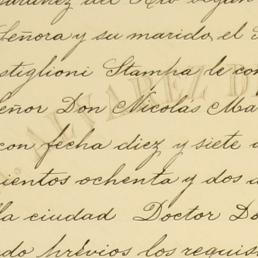 del Rio segun
Señora y su marido, el
Stampa le con
eñor Don Nicolas Ma
con fecha diez y siete
ientos ochenta y dos a
lla ciudad Doctor Do
do prévios los requisi